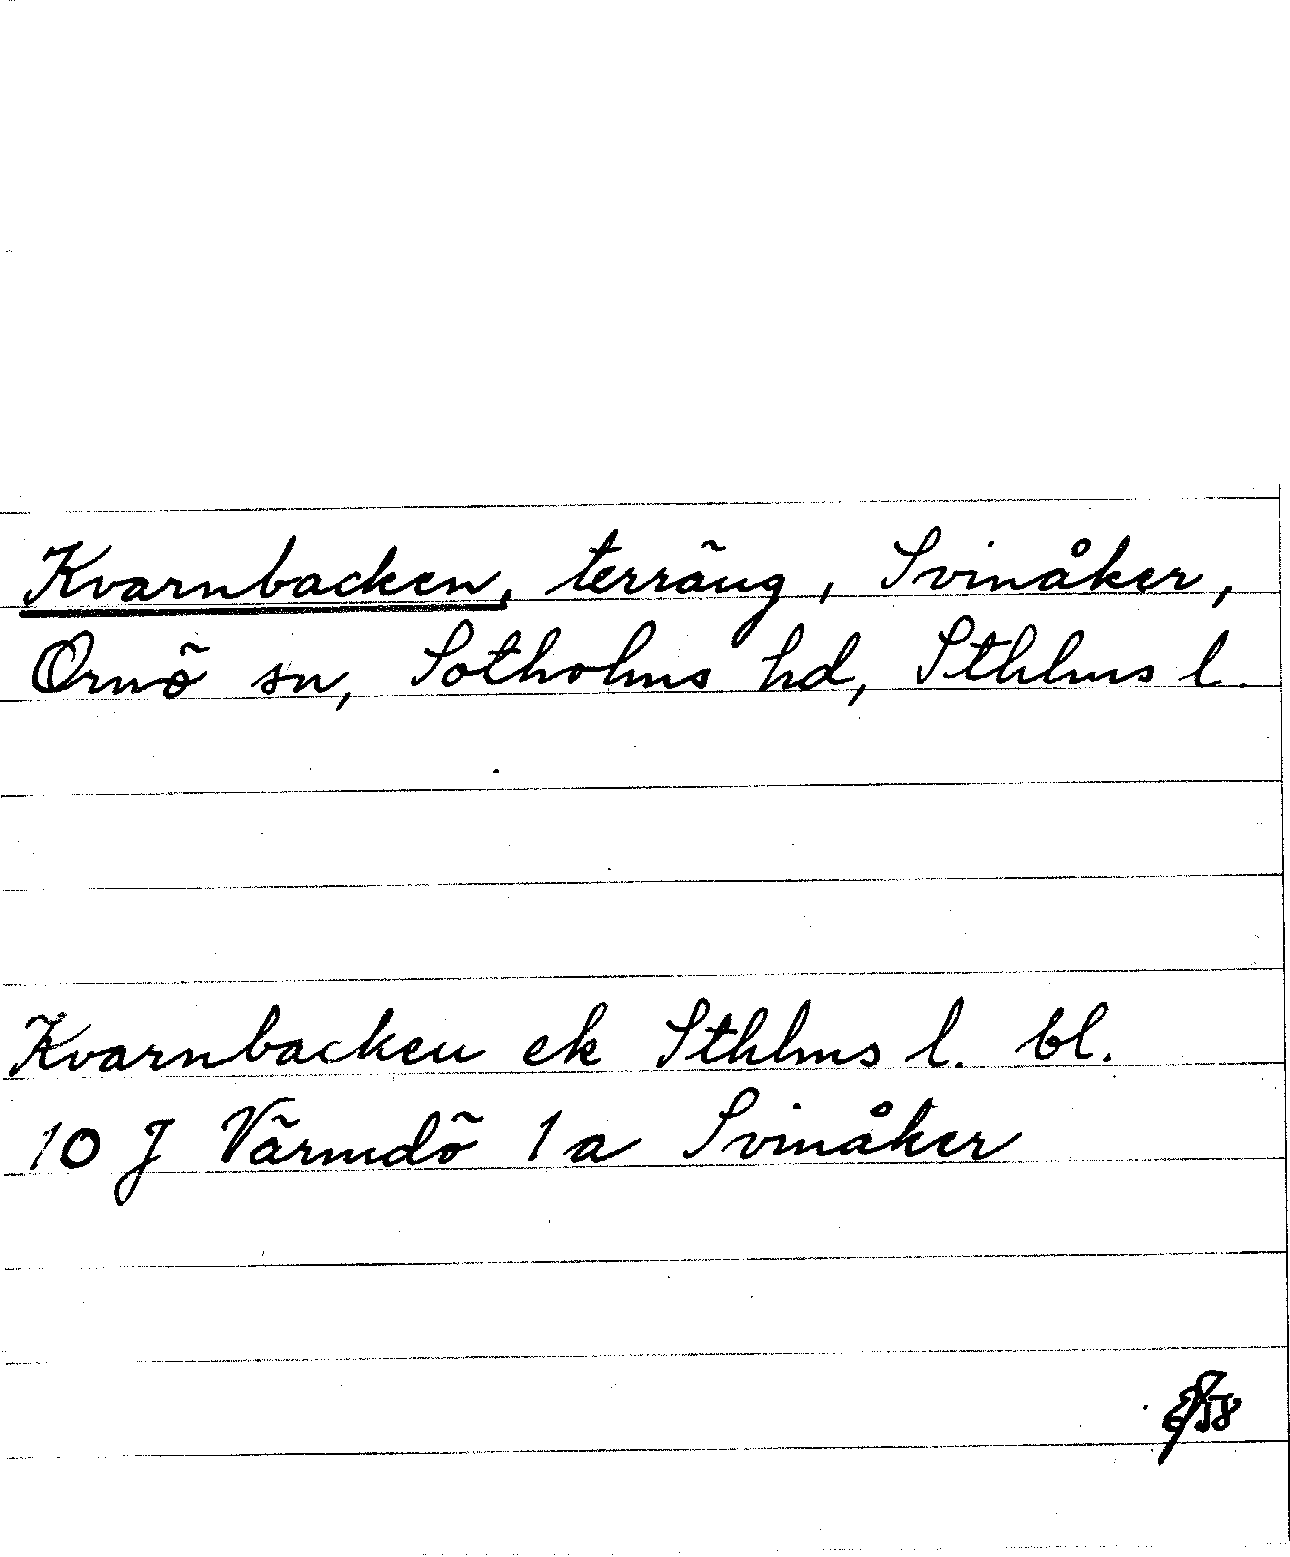 Kvarnbacken, terräng, Svinåker,
Ornö sn, Sotholms hd, Sthlms l.
Kvarnbacken ek Sthlms l. bl.
10 J Värmdö 1a Svinåker